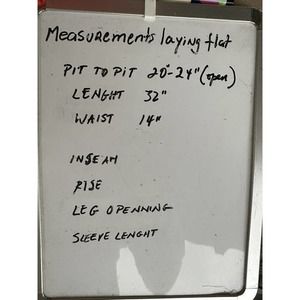 Measurements laying flat
PIT TO PIT 20"-24" (open)
LENGHT 32"
WAIST 14"
INSEAM
RISE
LEG OPENNING
SLEEVE LENGHT